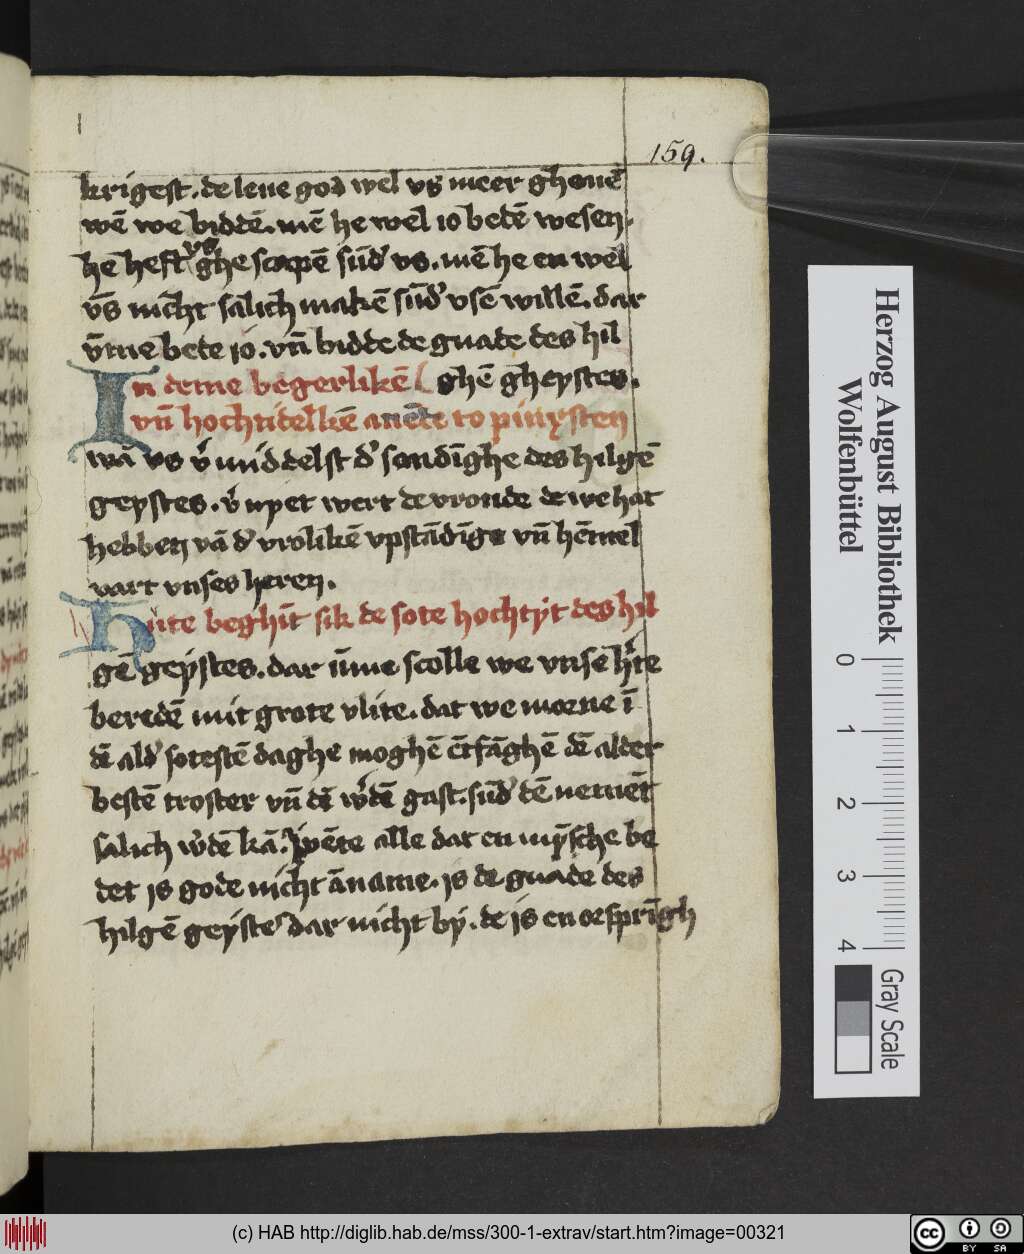 159.
krigest. de leue god wel vs meer gheuē
wē we biddē. mē he wel io betē wesen.
he heft vs ghe scapē sūd' vs. mē he en wel
v̄s nicht salich makē sūd' vsē willē. dar
v̄me bete io. vn̄ bidde de gnade des hil
In deme begerlikē ghē gheystes.
vn̄ hochtidelkē auēde to pinxsten
wā vs v̓ middelst d' sendīghe des hilgē
geystes. v̓ nyet wert de vronde de we hat
hebben vā d' vrolikē vpstādīge vn̄ hēmel
vart vnses heren.
Hute beghīt sik de sote hochtyt des hil
gē geystes. dar ūme scolle we vnse h'te
beredē mit grote vlite. dat we morne ī
dē ald' sotestē daghe moghē ētfāghē dē alder
bestē troster vn̄ dē w'dē gast. sūd' dē nemēt
salich w'dē kā. wēte alle dat en mȳsche be
det is gode nicht āname. is de gnade des
hilgē geystes dar nicht by. de is en orsprīgh
Herzog August Bibliothek
Wolfenbüttel
0 1 2 3 4
Gray Scale
(c) HAB http://diglib.hab.de/mss/300-1-extrav/start.htm?image=00321
cc BY SA